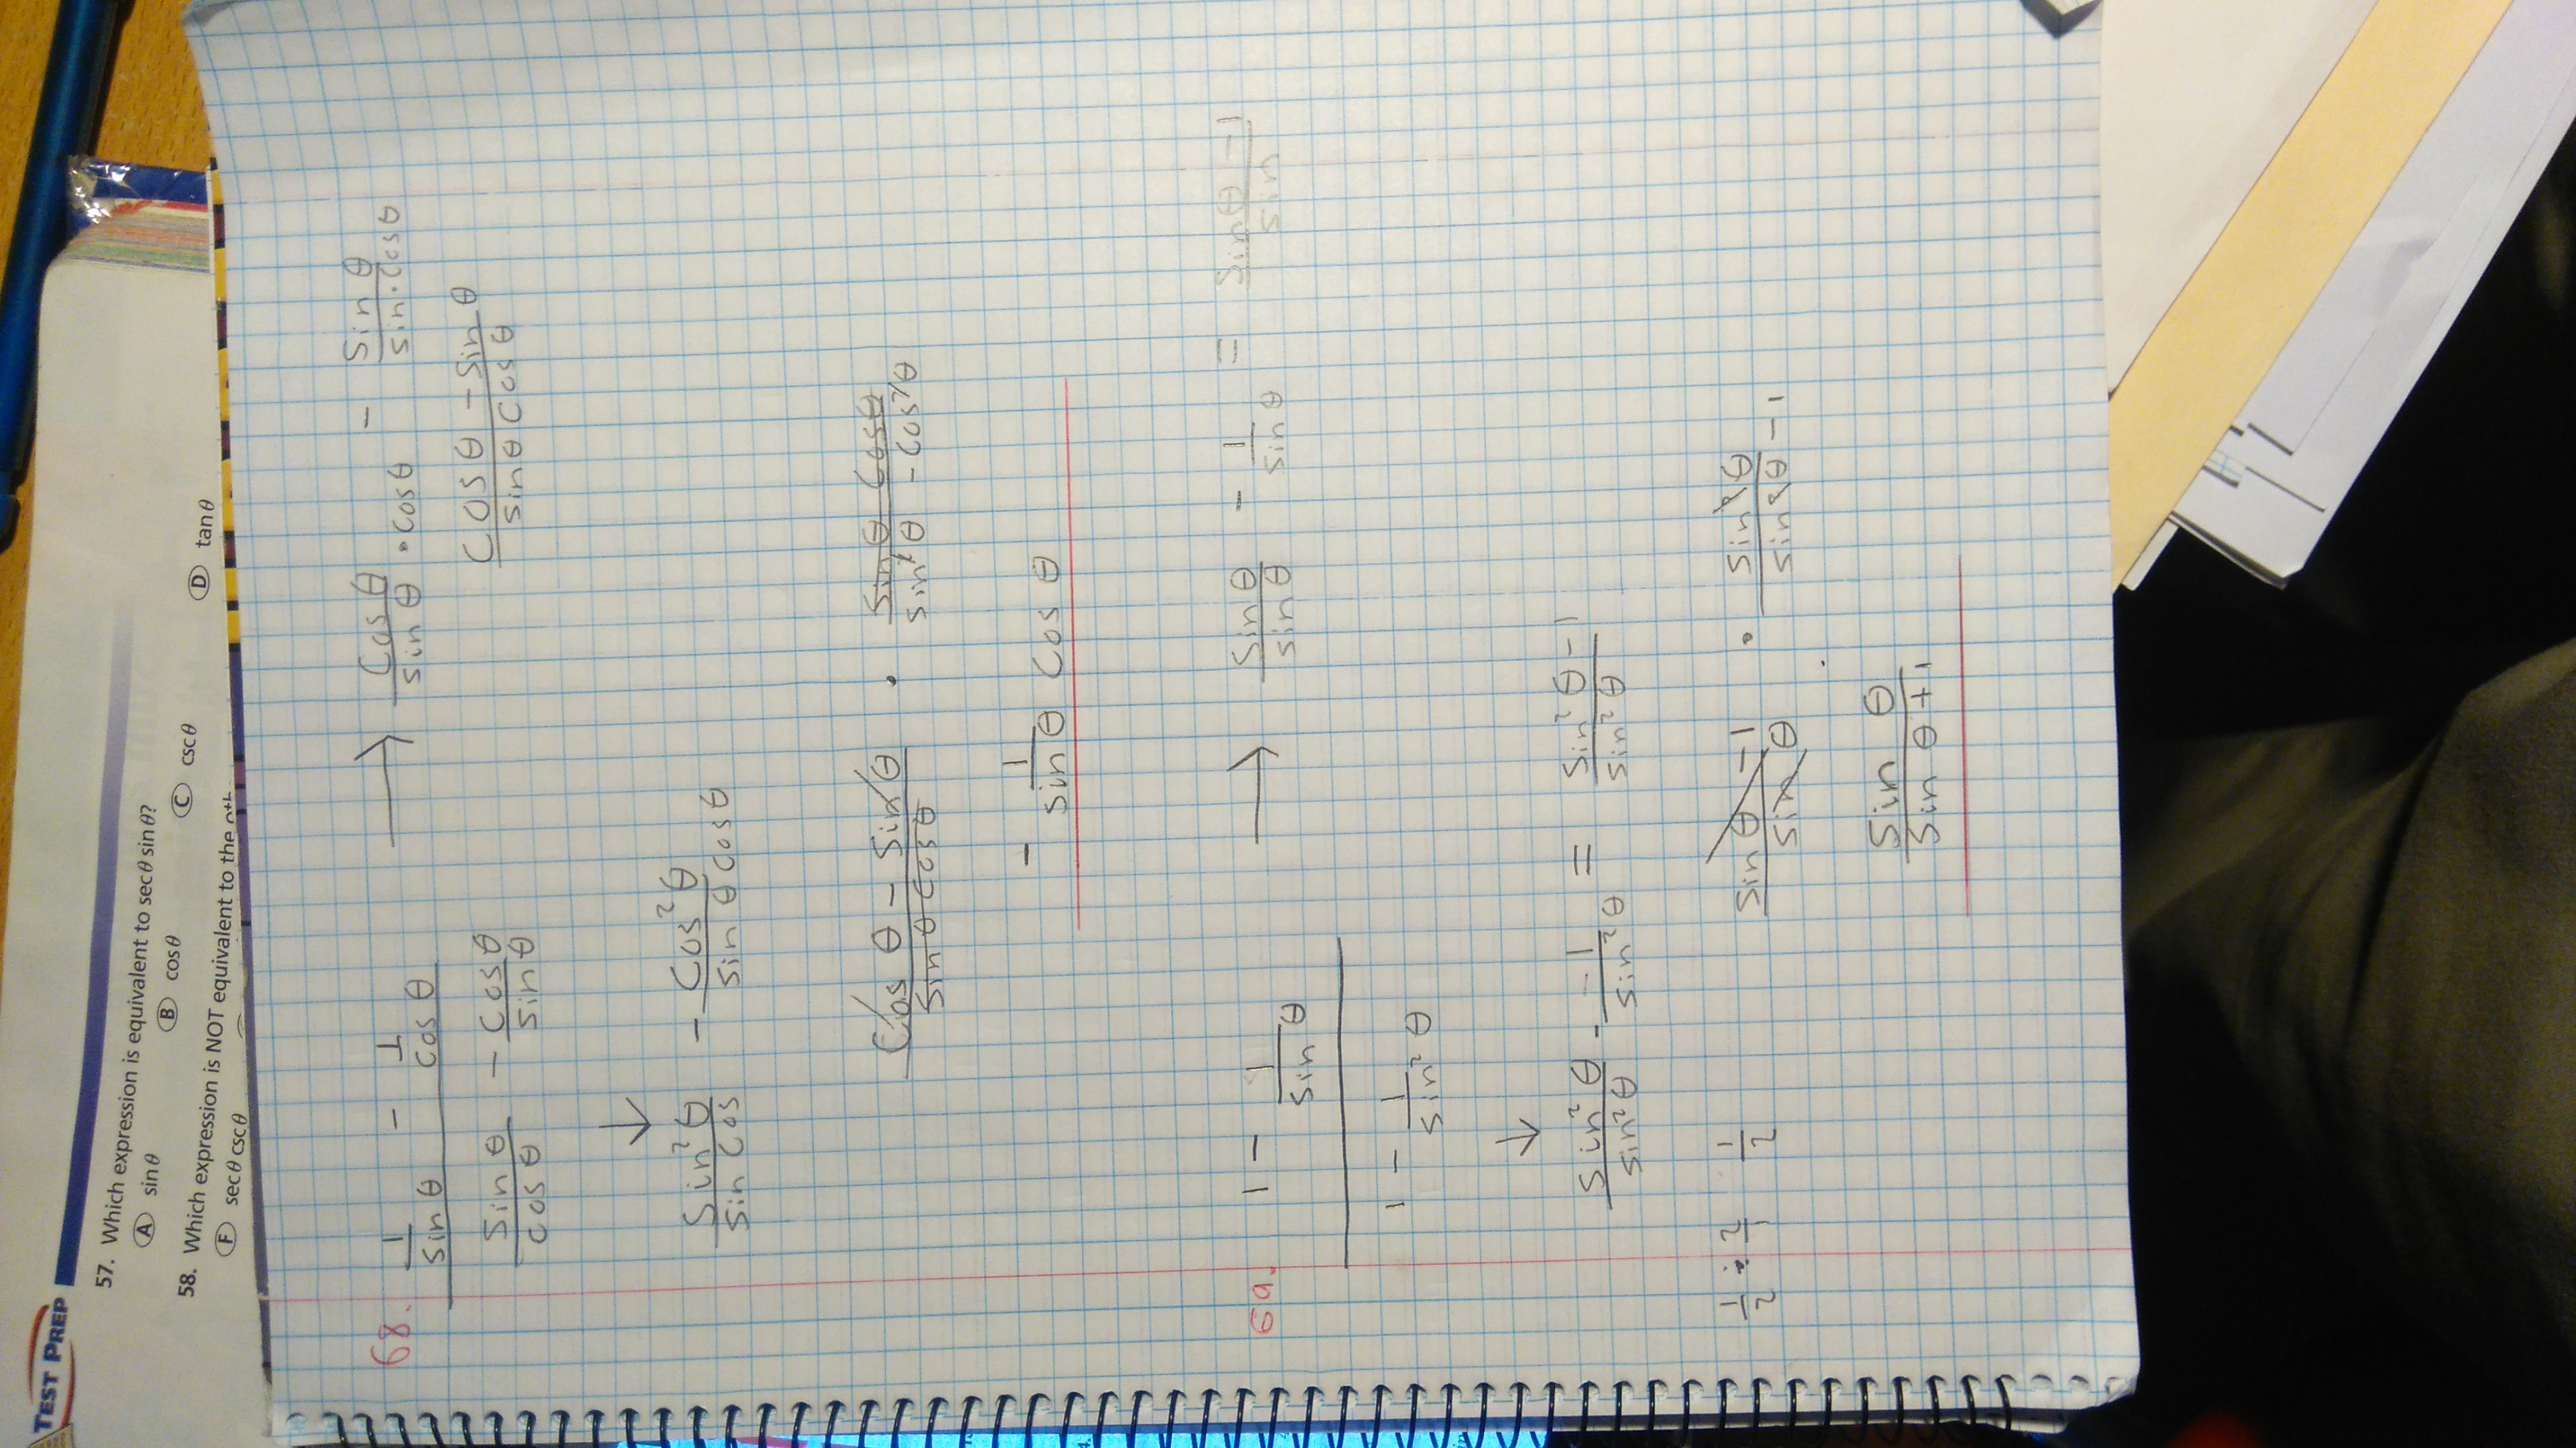 TEST PREP
57. Which expression is equivalent to secθ sinθ?
A sinθ B cosθ C cscθ D tanθ
58. Which expression is NOT equivalent to the
F secθ cscθ
68. 1/sin θ - 1/cos θ → cos θ/sin θ · cos θ - sin θ/sin · cos θ
sin θ/cos θ - cos θ/sin θ
cos θ - sin θ/sin θ cos θ
↓
sin² θ/sin cos - cos² θ/sin θ cos θ
cos θ - sin θ/sin θ cos θ · sin θ cos θ/sin² θ - cos² θ
- 1/sin θ cos θ
69. 1 - 1/sin θ → sin θ/sin θ - 1/sin θ = sin θ - 1/sin
1 - 1/sin² θ
↓
sin² θ/sin² θ - 1/sin² θ = sin² θ - 1/sin² θ
1/2 ÷ 2/1 1/2 sin θ - 1/sin θ · sin² θ/sin² θ - 1
sin θ/sin θ + 1